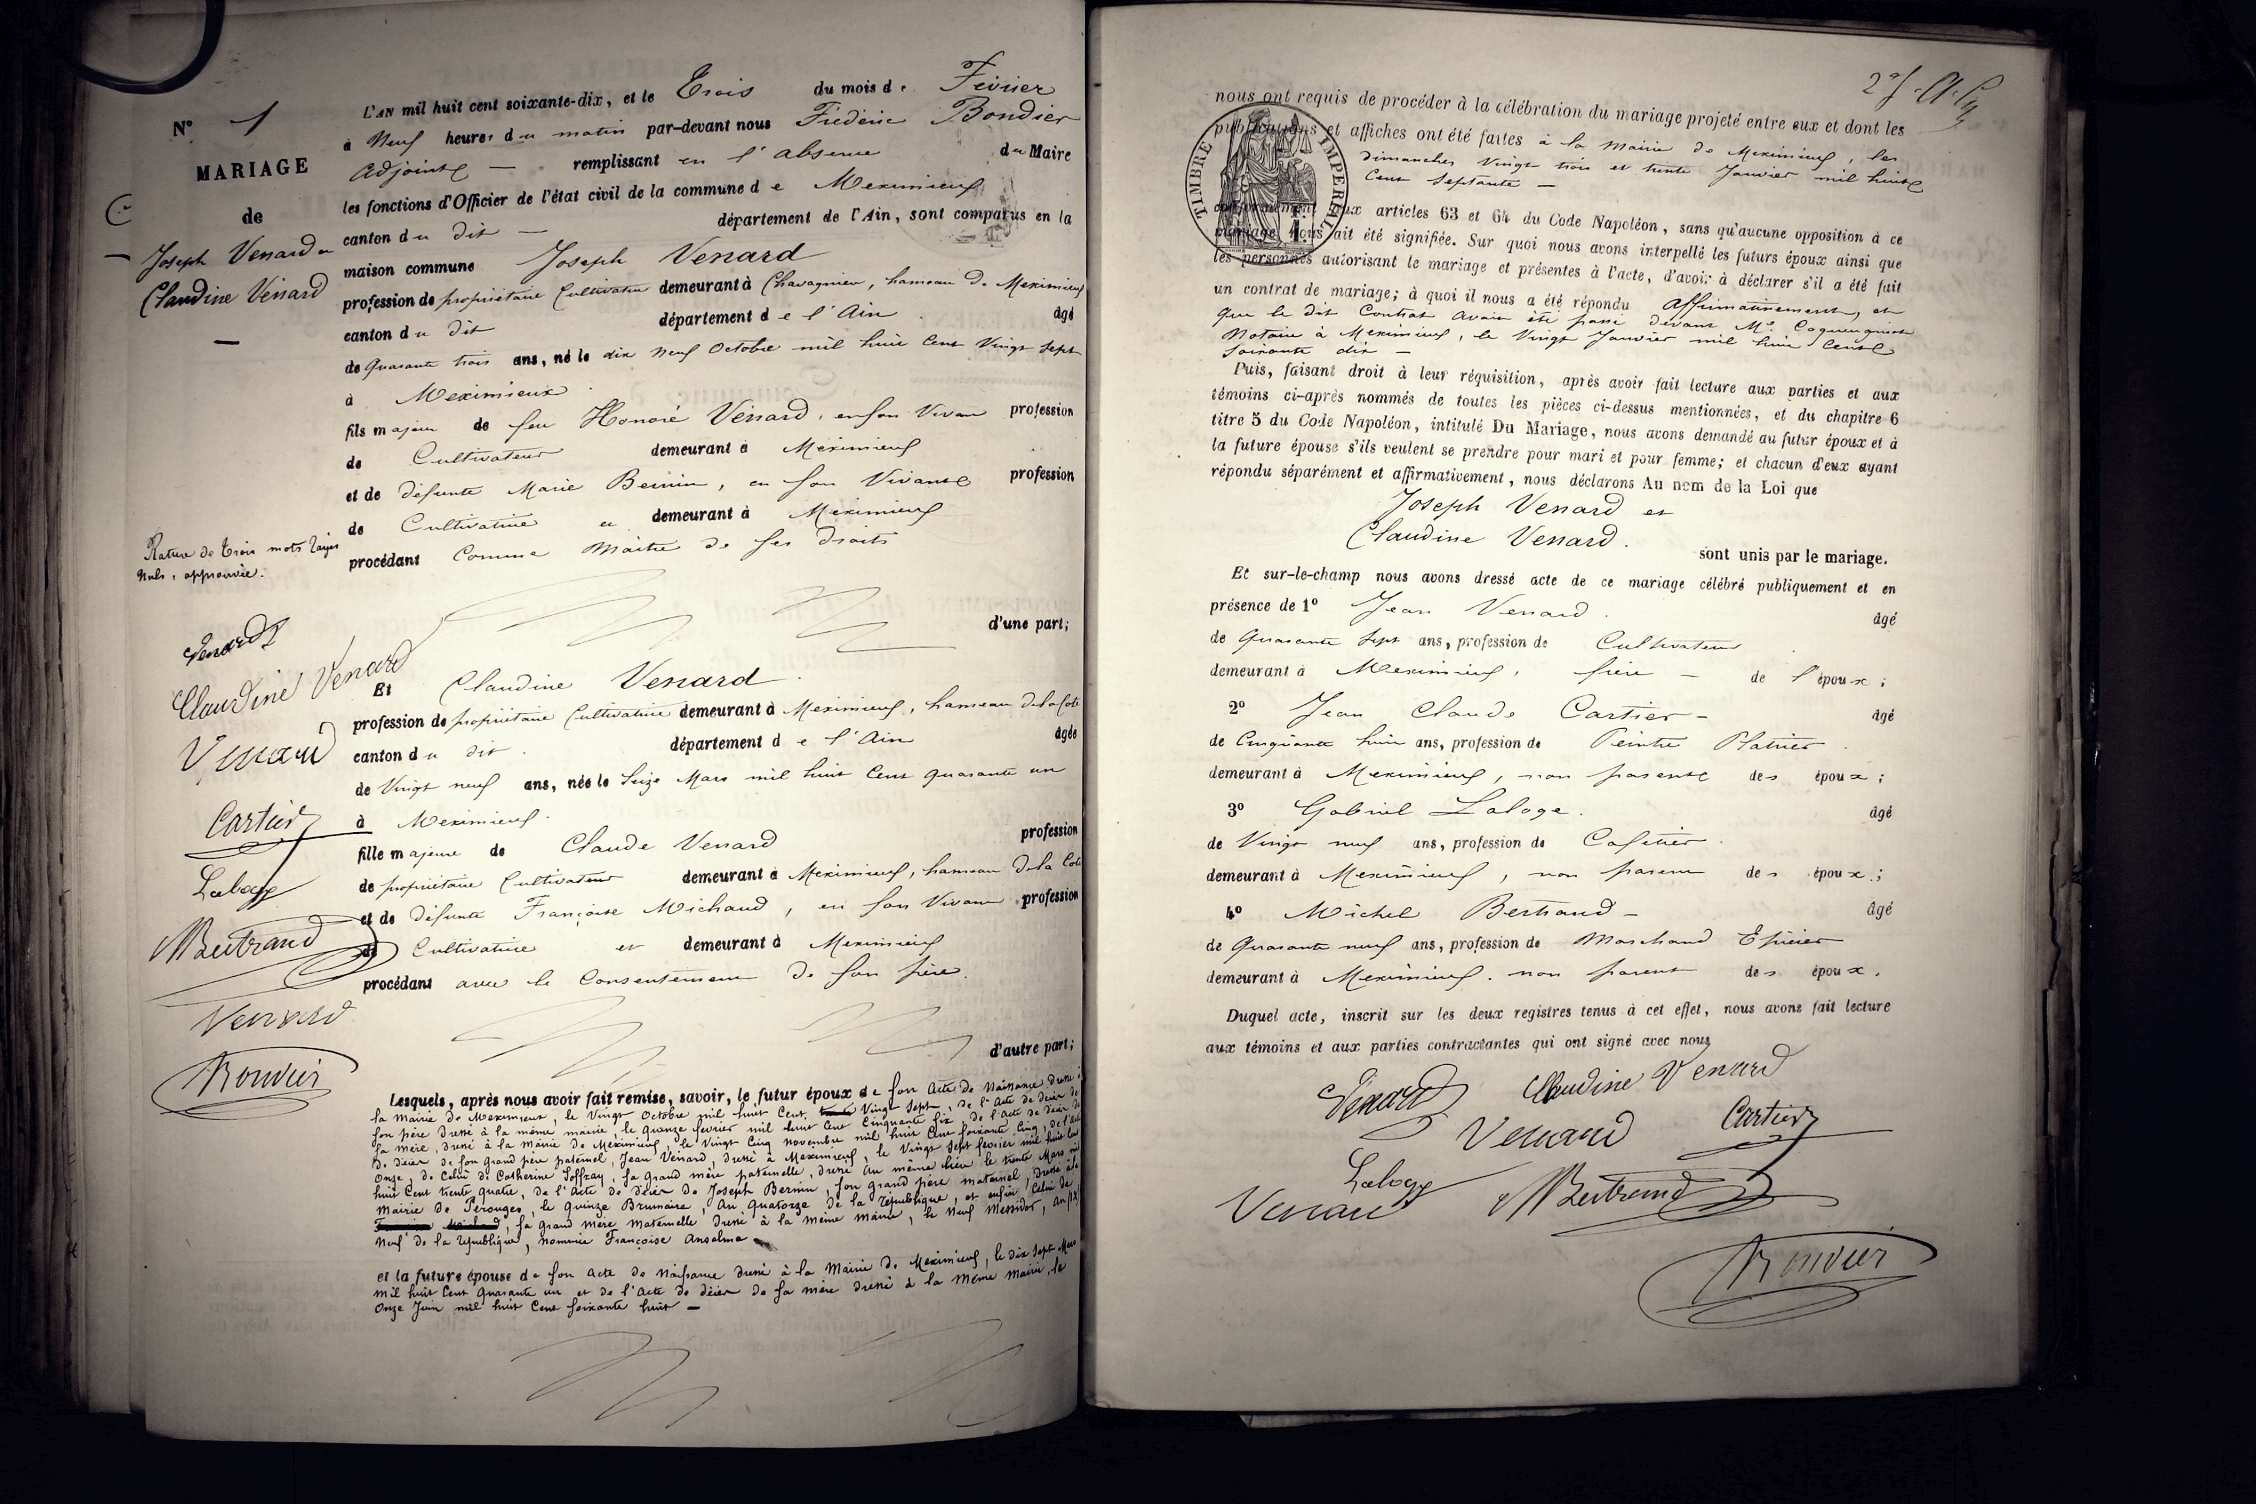 N° 1
MARIAGE
de
Joseph Venard et
Claudine Venard
L'AN mil huit cent soixante-dix, et le Trois du mois de Février
à Neuf heures du matin par-devant nous Fréderic Bondier
Adjoint remplissant en l'absence du Maire
les fonctions d'Officier de l'état civil de la commune de Meximieux
canton du dit département de l'Ain, sont comparus en la
maison commune Joseph Venard
profession de propriétaire Cultivateur demeurant à Chavagnieu, hameau de Meximieux
canton du dit département de l'Ain âgé
de Quarante trois ans, né le dix neuf Octobre mil huit Cent Vingt sept
à Meximieux
fils majeur de feu Honoré Venard, en son Vivant profession
de Cultivateur demeurant à Meximieux
et de défunte Marie Bernin, en son Vivante profession
de Cultivatrice et demeurant à Meximieux
procédant Comme Maître de ses droits
Rature de trois mots rayés
nuls, approuvée.
d'une part;
Venard
Claudine Venard
Venard
Cartier
Laloge
MBertrand
Venard
Et Claudine Venard
profession de propriétaire Cultivatrice demeurant à Meximieux, hameau de la Cote
canton du dit département de l'Ain âgée
de Vingt neuf ans, née le Seize Mars mil huit Cent quarante un
à Meximieux.
fille majeure de Claude Venard profession
de propriétaire Cultivateur demeurant à Meximieux, hameau de la Cote
et de défunte Françoise Michaud, en son Vivant profession
de Cultivatrice et demeurant à Meximieux
procédant avec le Consentement de son père.
d'autre part;
Lesquels, après nous avoir fait remise, savoir, le futur époux de son Acte de Naissance dressé à
la Mairie de Meximieux, le Vingt Octobre mil huit Cent Vingt Sept, de l'Acte de décès de
son père dressé à la même mairie le quinze fevrier mil huit Cent Cinquante six de l'Acte de décès de
sa mère, dressé à la Mairie de Meximieux, le Vingt Cinq novembre mil huit Cent soixante Cinq, de l'acte
de décès de son grand père paternel, Jean Venard, dressé à Meximieux, le Vingt Sept fevrier mil huit Cent
Onze, de Celui de Catherine Joffray, sa grand mère paternelle, dressé au même lieu le trente Mars mil
huit Cent trente quatre, de l'acte de décès de Joseph Bernin, son grand père maternel, dressé à la
Mairie de Pérouges, le Quinze Brumaire, An quatorze de la république, et enfin Celui de
sa grand mère maternelle dressé à la même mairie, le neuf Messidor, an
neuf de la république, nommée Françoise Anselme
et la future épouse de son Acte de Naissance dressé à la Mairie de Meximieux, le dix sept Mars
mil huit Cent quarante un et de l'Acte de décès de sa mère dressé à la même mairie, le
Onze Juin mil huit Cent soixante huit
nous ont requis de procéder à la célébration du mariage projeté entre eux et dont les
publications et affiches ont été faites à la Mairie de Meximieux, les
dimanches Vingt trois et trente Janvier mil huit
Cent Septante
TIMBRE IMPERIAL
conformément aux articles 63 et 64 du Code Napoléon, sans qu'aucune opposition à ce
mariage nous ait été signifiée. Sur quoi nous avons interpellé les futurs époux ainsi que
les personnes autorisant le mariage et présentes à l'acte, d'avoir à déclarer s'il a été fait
un contrat de mariage; à quoi il nous a été répondu Affirmativement, et
que le dit Contrat avait été passé devant Me
Notaire à Meximieux, le Vingt Janvier mil huit Cent
soixante dix
Puis, faisant droit à leur réquisition, après avoir fait lecture aux parties et aux
témoins ci-après nommés de toutes les pièces ci-dessus mentionnées, et du chapitre 6
titre 5 du Code Napoléon, intitulé Du Mariage, nous avons demandé au futur époux et à
la future épouse s'ils veulent se prendre pour mari et pour femme; et chacun d'eux ayant
répondu séparément et affirmativement, nous déclarons Au nom de la Loi que
Joseph Venard et
Claudine Venard.
sont unis par le mariage.
Et sur-le-champ nous avons dressé acte de ce mariage célébré publiquement et en
présence de 1° Jean Venard. âgé
de Quarante sept ans, profession de Cultivateur
demeurant à Meximieux, frère de l'époux;
2° Jean Claude Cartier âgé
de Cinquante huit ans, profession de Peintre Platrier
demeurant à Meximieux, non parent des époux;
3° Gabriel Laloge. âgé
de Vingt neuf ans, profession de Cafetier
demeurant à Meximieux, non parent des époux;
4° Michel Bertrand âgé
de Quarante neuf ans, profession de Marchand Epicier
demeurant à Meximieux. non parent des époux.
Duquel acte, inscrit sur les deux registres tenus à cet effet, nous avons fait lecture
aux témoins et aux parties contractantes qui ont signé avec nous
Venard Claudine Venard
Venard Cartier
Laloge
Venard MBertrand